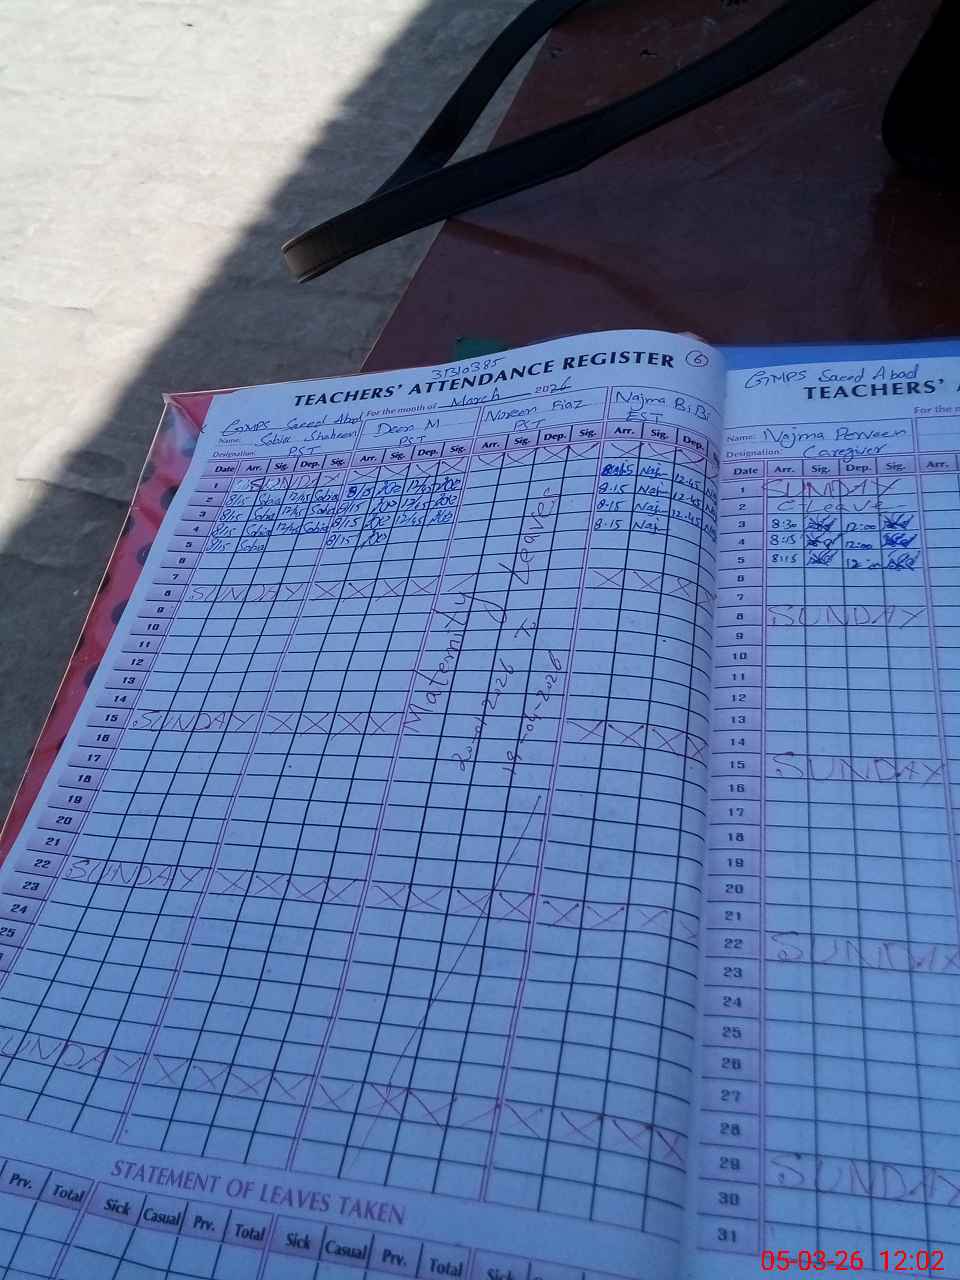 31310385
TEACHERS' ATTENDANCE REGISTER 6
GMPS Saeed Abad For the month of March 2026
Name: Sobia Shaheen Deen M Noreen Fiaz Najma BiBi
Designation: PST PST PST EST
Date Arr. Sig. Dep. Sig. Arr. Sig. Dep. Sig. Arr. Sig. Dep. Sig. Arr. Sig. Dep.
1 SUNDAY
2 8/15 Sobia 12/45 Sobia 8/15 12/45 8:15 Naj 12:45
3 8/15 Sobia 12/45 Sobia 8/15 12/45 8:15 Naj 12:45
4 8/15 Sobia 12/45 Sobia 8/15 12/45 8:15 Naj 12:45
5 8/15 Sobia 8/15 8:15 Naj
6
7
8 SUNDAY
9
10
11
12
13
14
15 SUNDAY
16
17
18
19
20
21
22 SUNDAY
23
24
25
SUNDAY
Maternity Leave
20-01-2026 To
19-04-2026
STATEMENT OF LEAVES TAKEN
Prv. Total Sick Casual Prv. Total Sick Casual Prv. Total Sick
GMPS Saeed Abad
TEACHERS'
For the m
Name: Najma Perveen
Designation: Caregiver
Date Arr. Sig. Dep. Sig. Arr.
1 SUNDAY
2 C-Leave
3 8:30 12:00
4 8:15 12:00
5 8:15
6
7
8 SUNDAY
9
10
11
12
13
14
15 SUNDAY
16
17
18
19
20
21
22 SUNDAY
23
24
25
26
27
28
29 SUNDAY
30
31
05-03-26 12:02